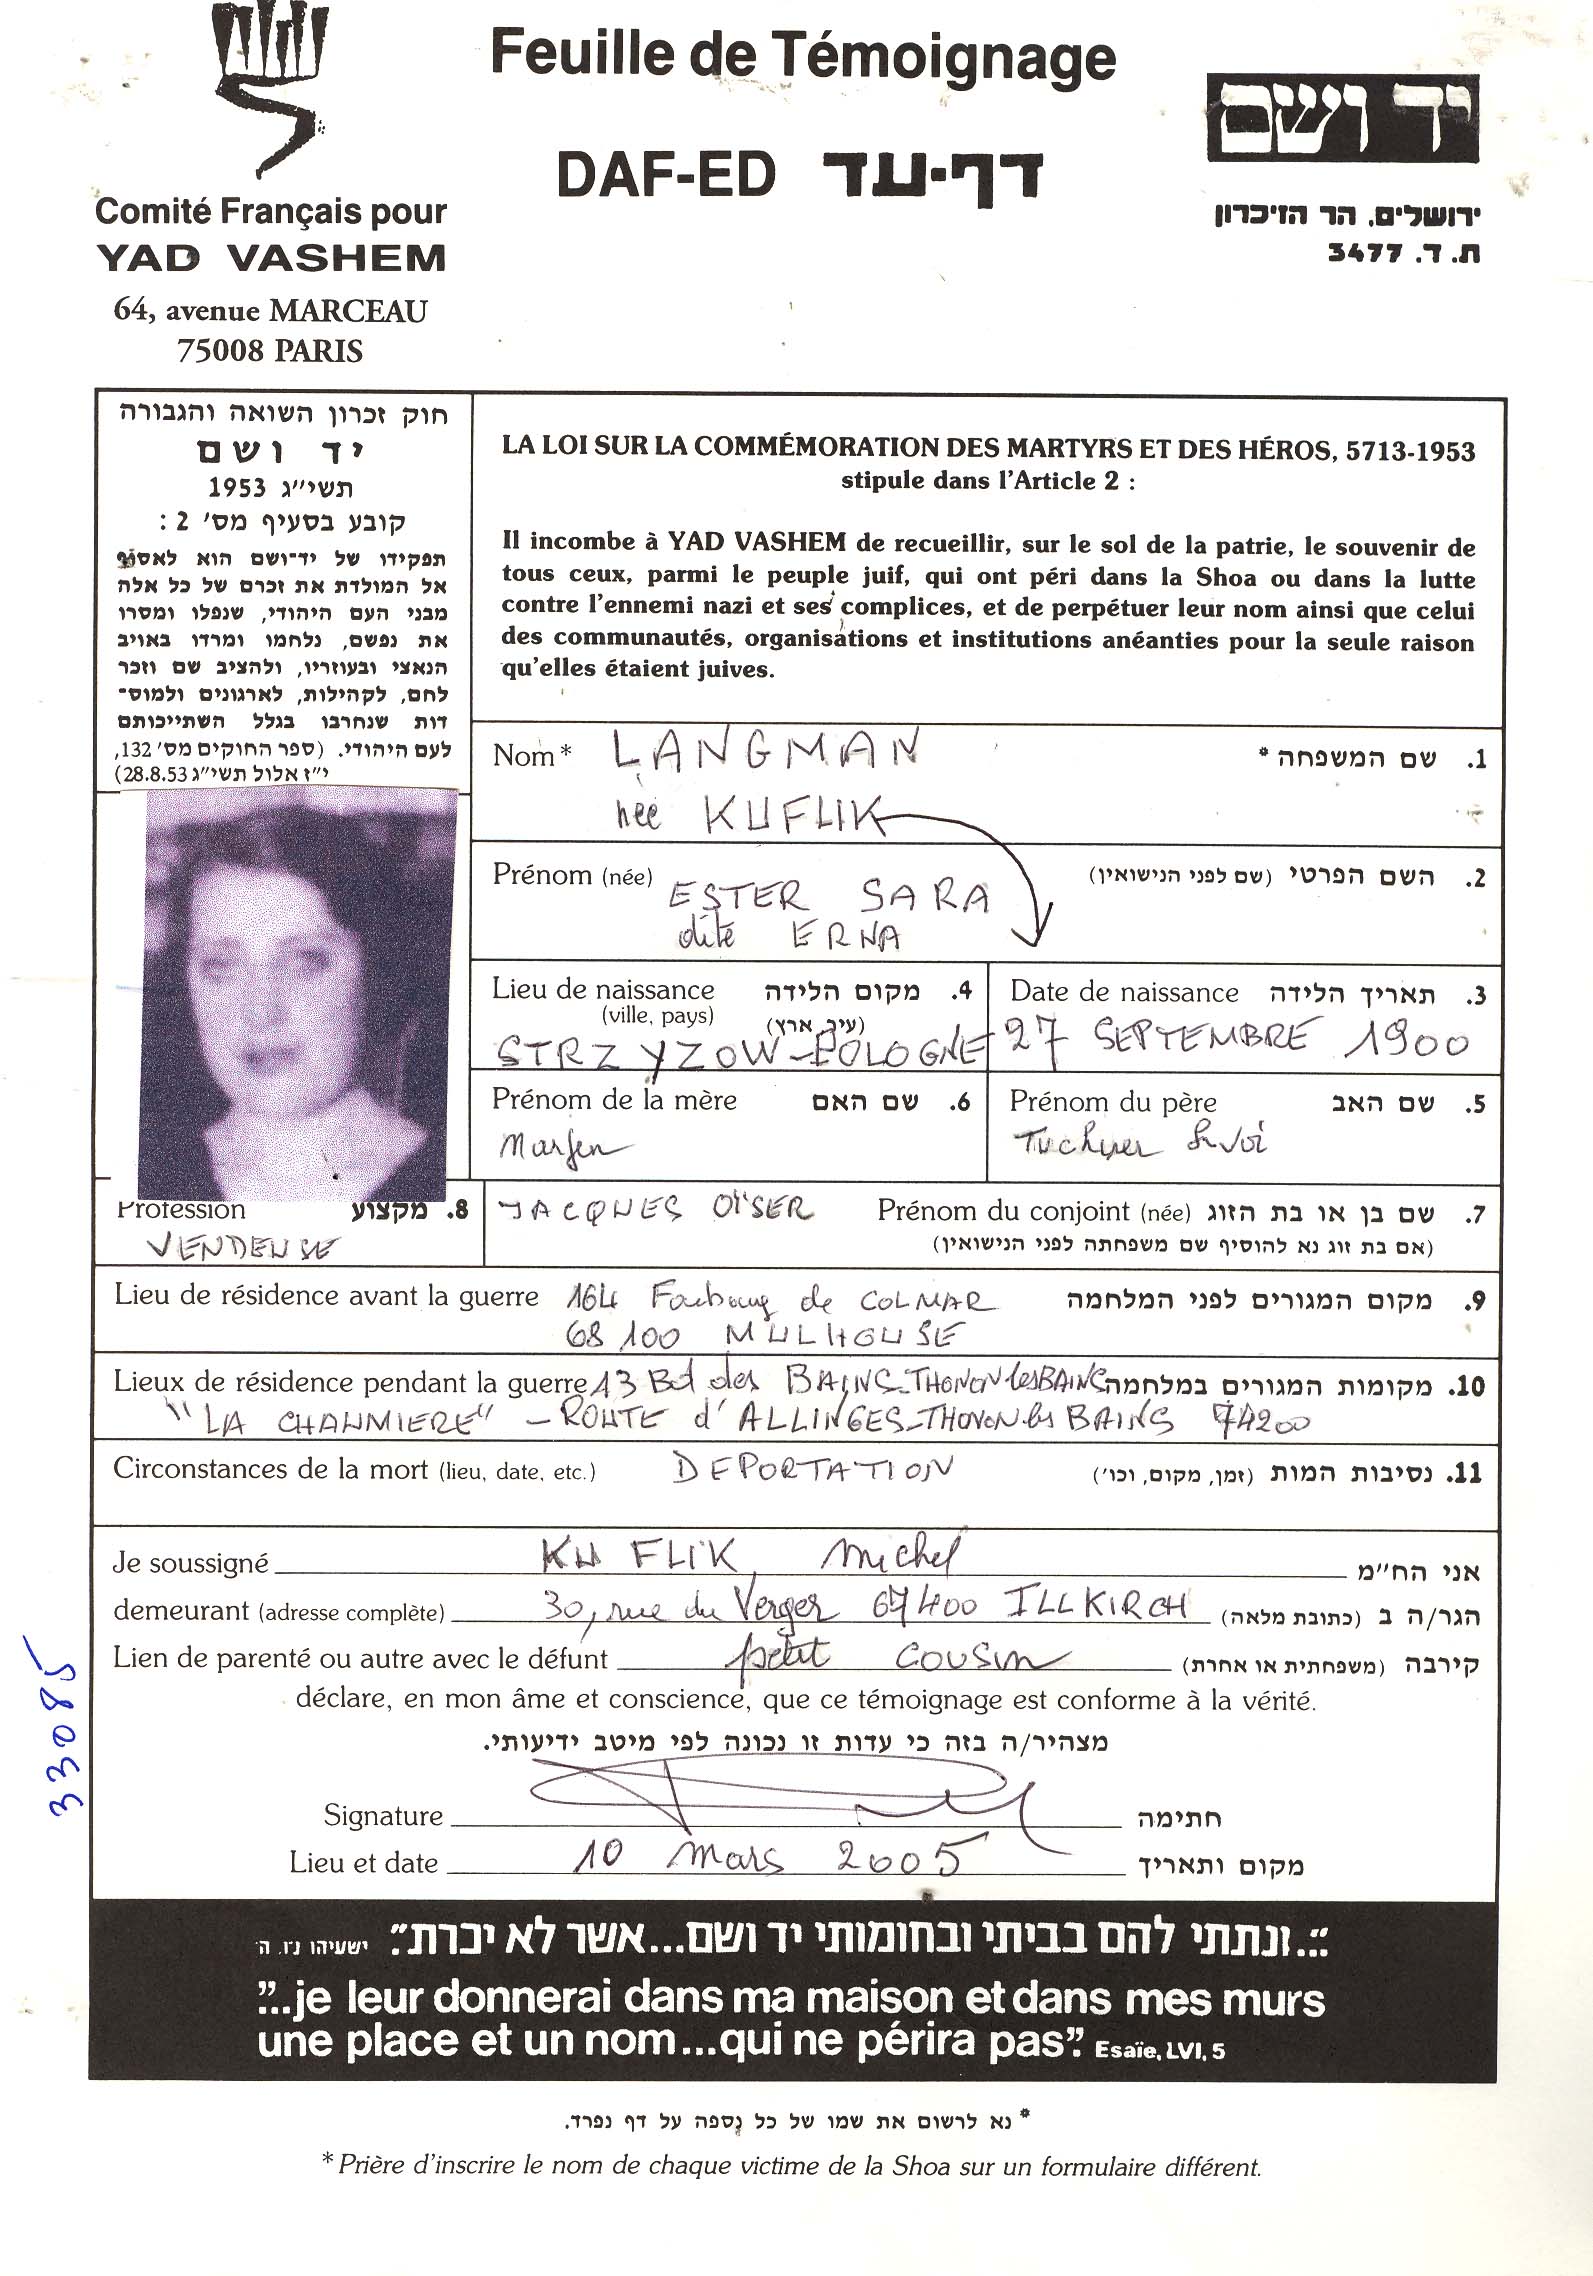 Feuille de Témoignage
DAF-ED דף-עד
Comité Français pour
YAD VASHEM
64, avenue MARCEAU
75008 PARIS
יד ושם
ירושלים. הר הזיכרון
ת. ד. 3477
חוק זכרון השואה והגבורה
יד ושם
תשי״ג 1953
קובע בסעיף מס׳ 2 :
תפקידו של יד־ושם הוא לאסוף
אל המולדת את זכרם של כל אלה
מבני העם היהודי, שנפלו ומסרו
את נפשם, נלחמו ומרדו באויב
הנאצי ובעוזריו, ולהציב שם וזכר
להם, לקהילות, לארגונים ולמוס־
דות שנחרבו בגלל השתייכותם
לעם היהודי. (ספר החוקים מס׳ 132,
י״ז אלול תשי״ג 28.8.53)
LA LOI SUR LA COMMÉMORATION DES MARTYRS ET DES HÉROS, 5713-1953
stipule dans l'Article 2 :
Il incombe à YAD VASHEM de recueillir, sur le sol de la patrie, le souvenir de
tous ceux, parmi le peuple juif, qui ont péri dans la Shoa ou dans la lutte
contre l'ennemi nazi et ses complices, et de perpétuer leur nom ainsi que celui
des communautés, organisations et institutions anéanties pour la seule raison
qu'elles étaient juives.
Nom * LANGMAN 1. שם המשפחה *
née KUFLIK
Prénom (née) 2. השם הפרטי (שם לפני הנישואין)
ESTER SARA
dite ERNA
Lieu de naissance 4. מקום הלידה
(ville, pays) (עיר, ארץ)
STRZYZOW-POLOGNE
Date de naissance 3. תאריך הלידה
27 SEPTEMBRE 1900
Prénom de la mère 6. שם האם
Prénom du père 5. שם האב
Profession 8. מקצוע
VENDEUSE
JACQUES OÏSER Prénom du conjoint (née) 7. שם בן או בת הזוג
(אם בת זוג נא להוסיף שם משפחתה לפני הנישואין)
Lieu de résidence avant la guerre 164 Faubourg de COLMAR 9. מקום המגורים לפני המלחמה
68100 MULHOUSE
Lieux de résidence pendant la guerre 13 Bd des BAINS-THONON les BAINS 10. מקומות המגורים במלחמה
"LA CHAUMIERE" - ROUTE d'ALLINGES-THONON les BAINS 74200
Circonstances de la mort (lieu, date, etc.) DEPORTATION 11. נסיבות המות (זמן, מקום, וכו׳)
Je soussigné KUFLIK Michel אני הח״מ
demeurant (adresse complète) 30, rue du Verger 67400 ILLKIRCH הגר/ה ב (כתובת מלאה)
Lien de parenté ou autre avec le défunt petit cousin קירבה (משפחתית או אחרת)
déclare, en mon âme et conscience, que ce témoignage est conforme à la vérité.
מצהיר/ה בזה כי עדות זו נכונה לפי מיטב ידיעותי.
Signature חתימה
Lieu et date 10 Mars 2005 מקום ותאריך
33085
״...ונתתי להם בביתי ובחומותי יד ושם...אשר לא יכרת״. ישעיהו נ״ו. ה׳
”...je leur donnerai dans ma maison et dans mes murs
une place et un nom...qui ne périra pas”. Esaïe, LVI, 5
* נא לרשום את שמו של כל נספה על דף נפרד.
* Prière d'inscrire le nom de chaque victime de la Shoa sur un formulaire différent.